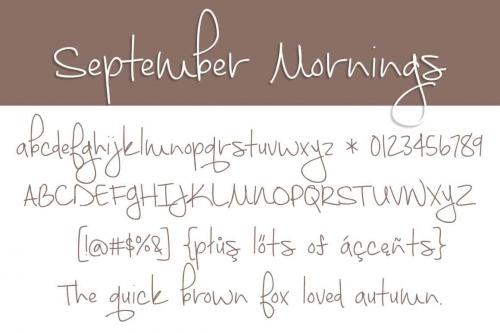 September Mornings
abcdefghijklmnopqrstuvwxyz * 0123456789
ABCDEFGHIJKLMNOPQRSTUVWXYZ
[!@#$%&] {płúş lőts of áççęñts}
The quick brown fox loved autumn.